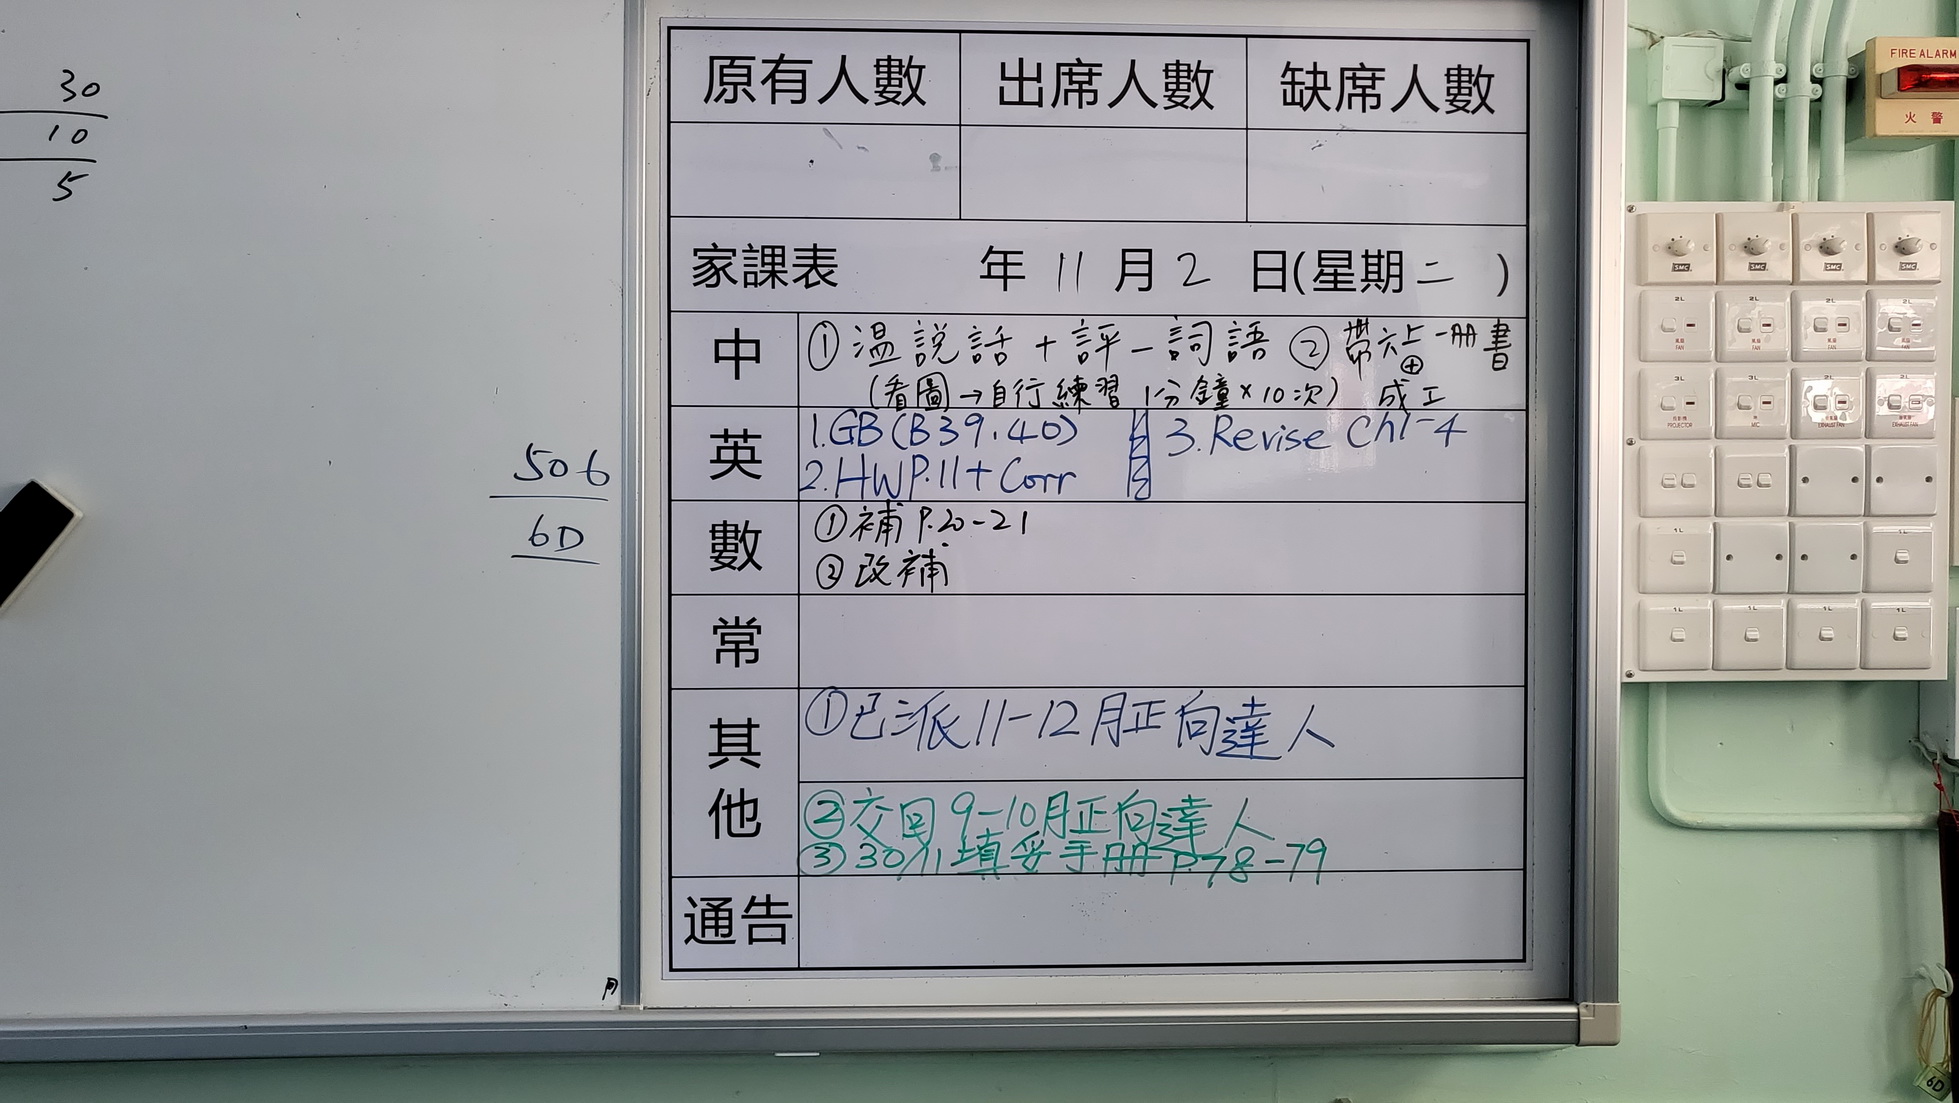 30
10
5
506
6D
原有人數 出席人數 缺席人數
家課表 年 11 月 2 日(星期二)
中 ①溫說話+評一詞語 ②帶六上一冊書
(看圖→自行練習1分鐘×10次) 成工
英 1.GB(B39.40) 3.Revise Ch1-4
2.HWP.11+Corr
數 ①補P.20-21
②改補
常
其他 ①已派11-12月正向達人
②交回9-10月正向達人
③30/11填妥手冊P.78-79
通告
FIRE ALARM
火警
SMC SMC SMC SMC
2L 2L 2L 2L
FAN FAN FAN FAN
3L 3L 2L 2L
PROJECTOR MIC EXHAUST FAN EXHAUST FAN
1L 1L
1L 1L 1L 1L
6D